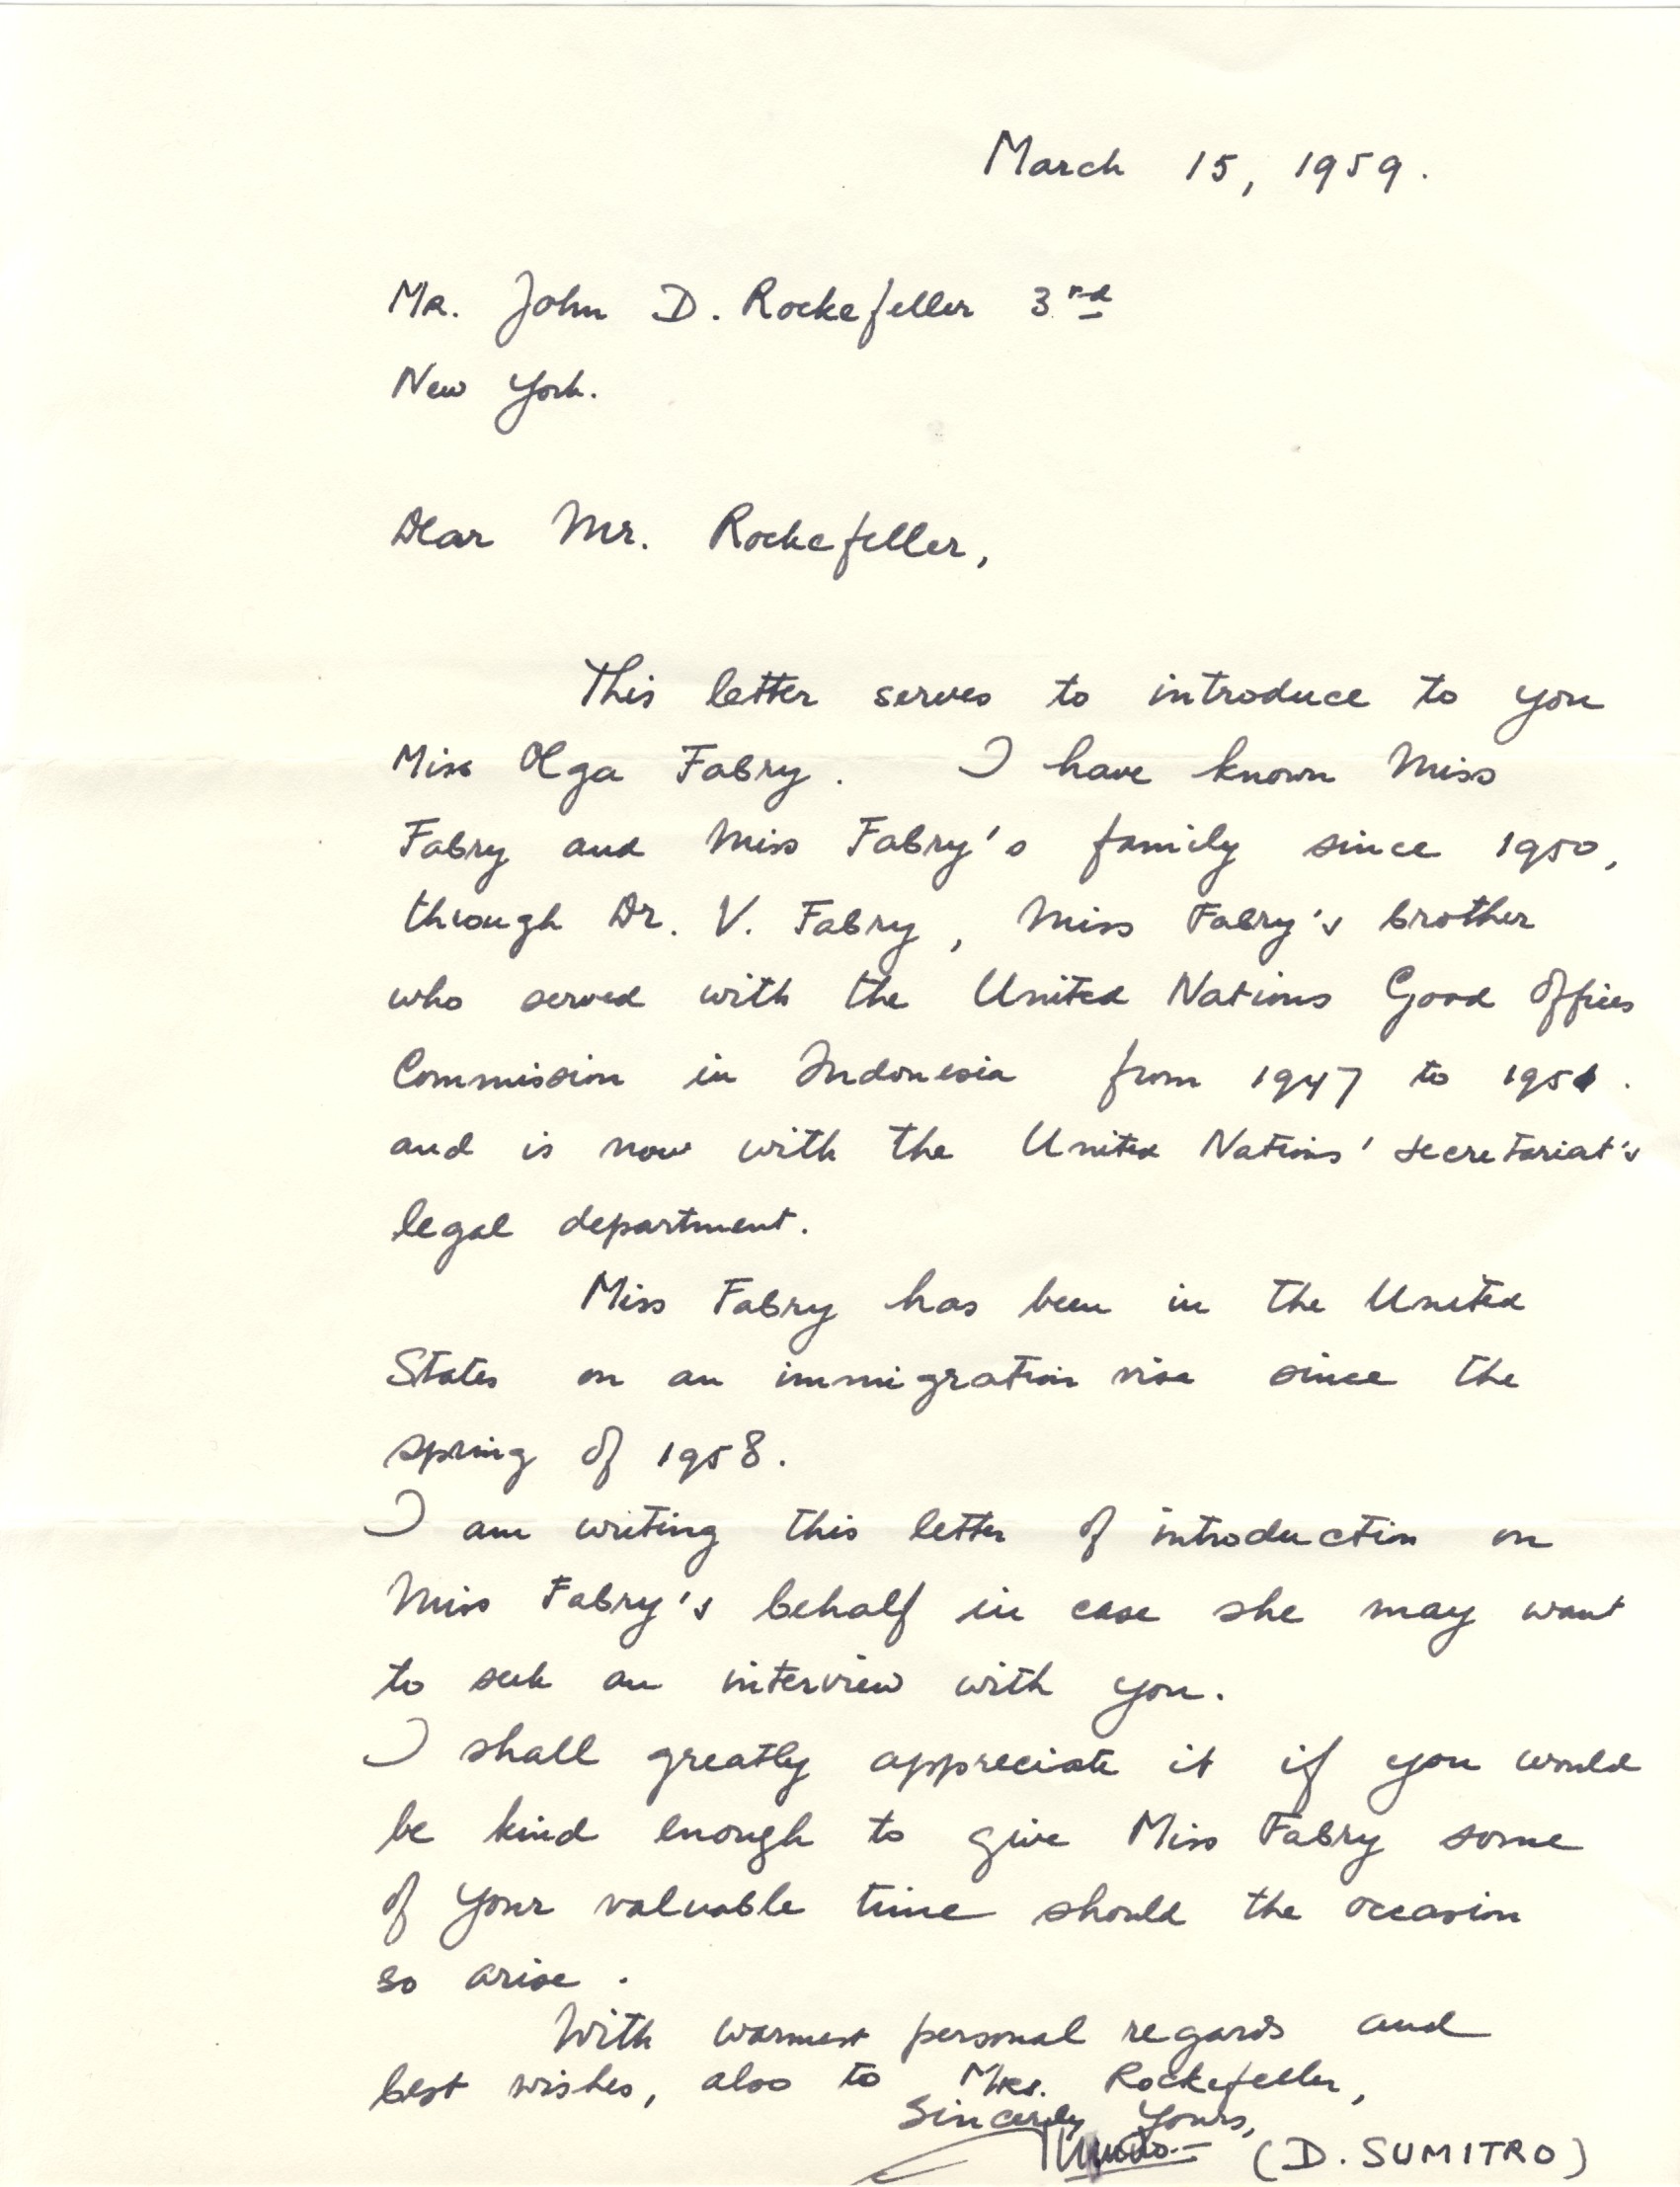 March 15, 1959.
MR. John D. Rockefeller 3rd
New York.
Dear Mr. Rockefeller,
This letter serves to introduce to you
Miss Olga Fabry. I have known Miss
Fabry and Miss Fabry's family since 1950,
through Dr. V. Fabry, Miss Fabry's brother
who served with the United Nations Good Offices
Commission in Indonesia from 1947 to 1951.
and is now with the United Nations' secretariat's
legal department.
Miss Fabry has been in the United
States on an immigration visa since the
spring of 1958.
I am writing this letter of introduction on
Miss Fabry's behalf in case she may want
to seek an interview with you.
I shall greatly appreciate it if you would
be kind enough to give Miss Fabry some
of your valuable time should the occasion
so arise.
With warmest personal regards and
best wishes, also to Mrs. Rockefeller,
Sincerely Yours,
(D. SUMITRO)